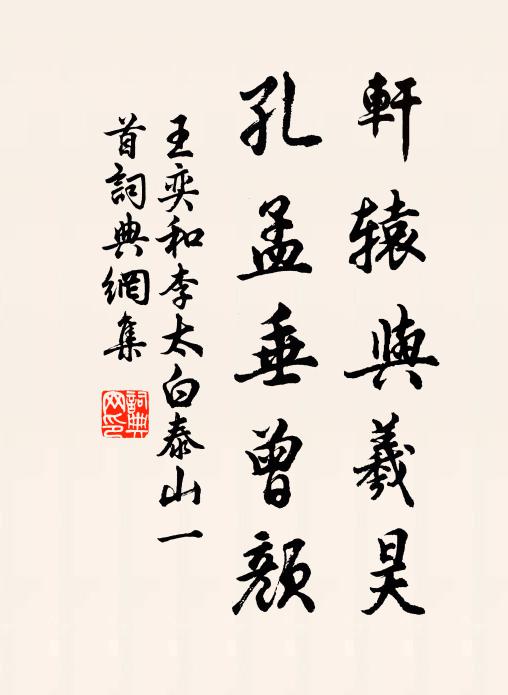 軒辕與羲昊
孔孟垂曾顔
王奕和李太白泰山一
首詞典網集
詞典
网印